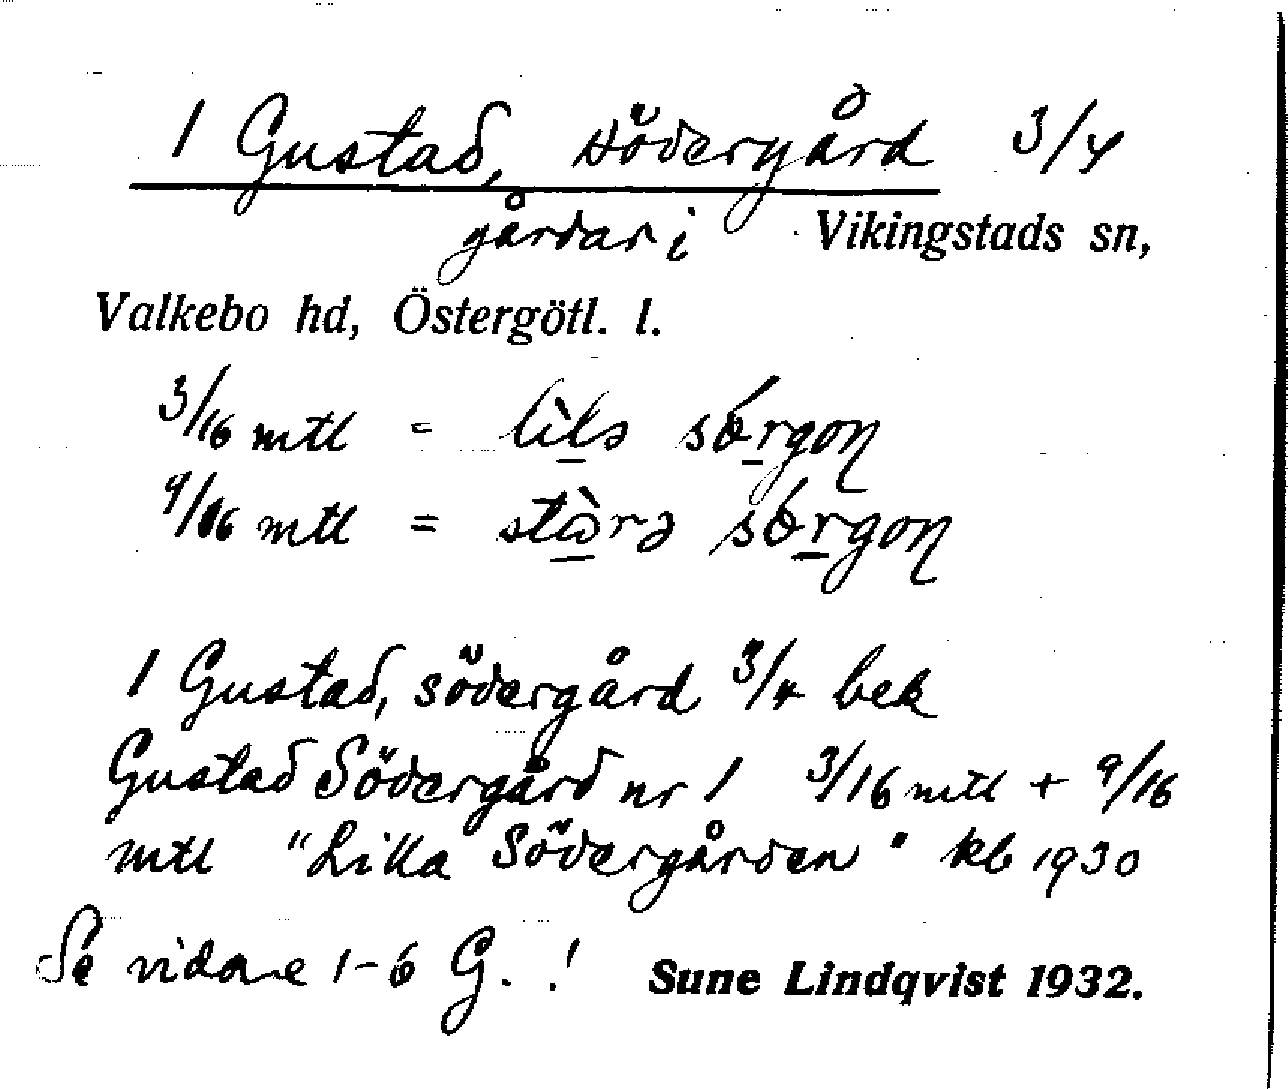 1 Gustad, Södergård 3/4
gårdar i Vikingstads sn,
Valkebo hd, Östergötl. l.
3/16 mtl = lìlə sǿrgoɲ
9/16 mtl = stꞷ̀rə sǿrgoɲ
1 Gustad, södergård 3/4 bek
Gustad Södergård nr 1 3/16 mtl + 9/16
mtl "Lilla Södergården" kb 1930
Se vidare 1-6 G. !
Sune Lindqvist 1932.